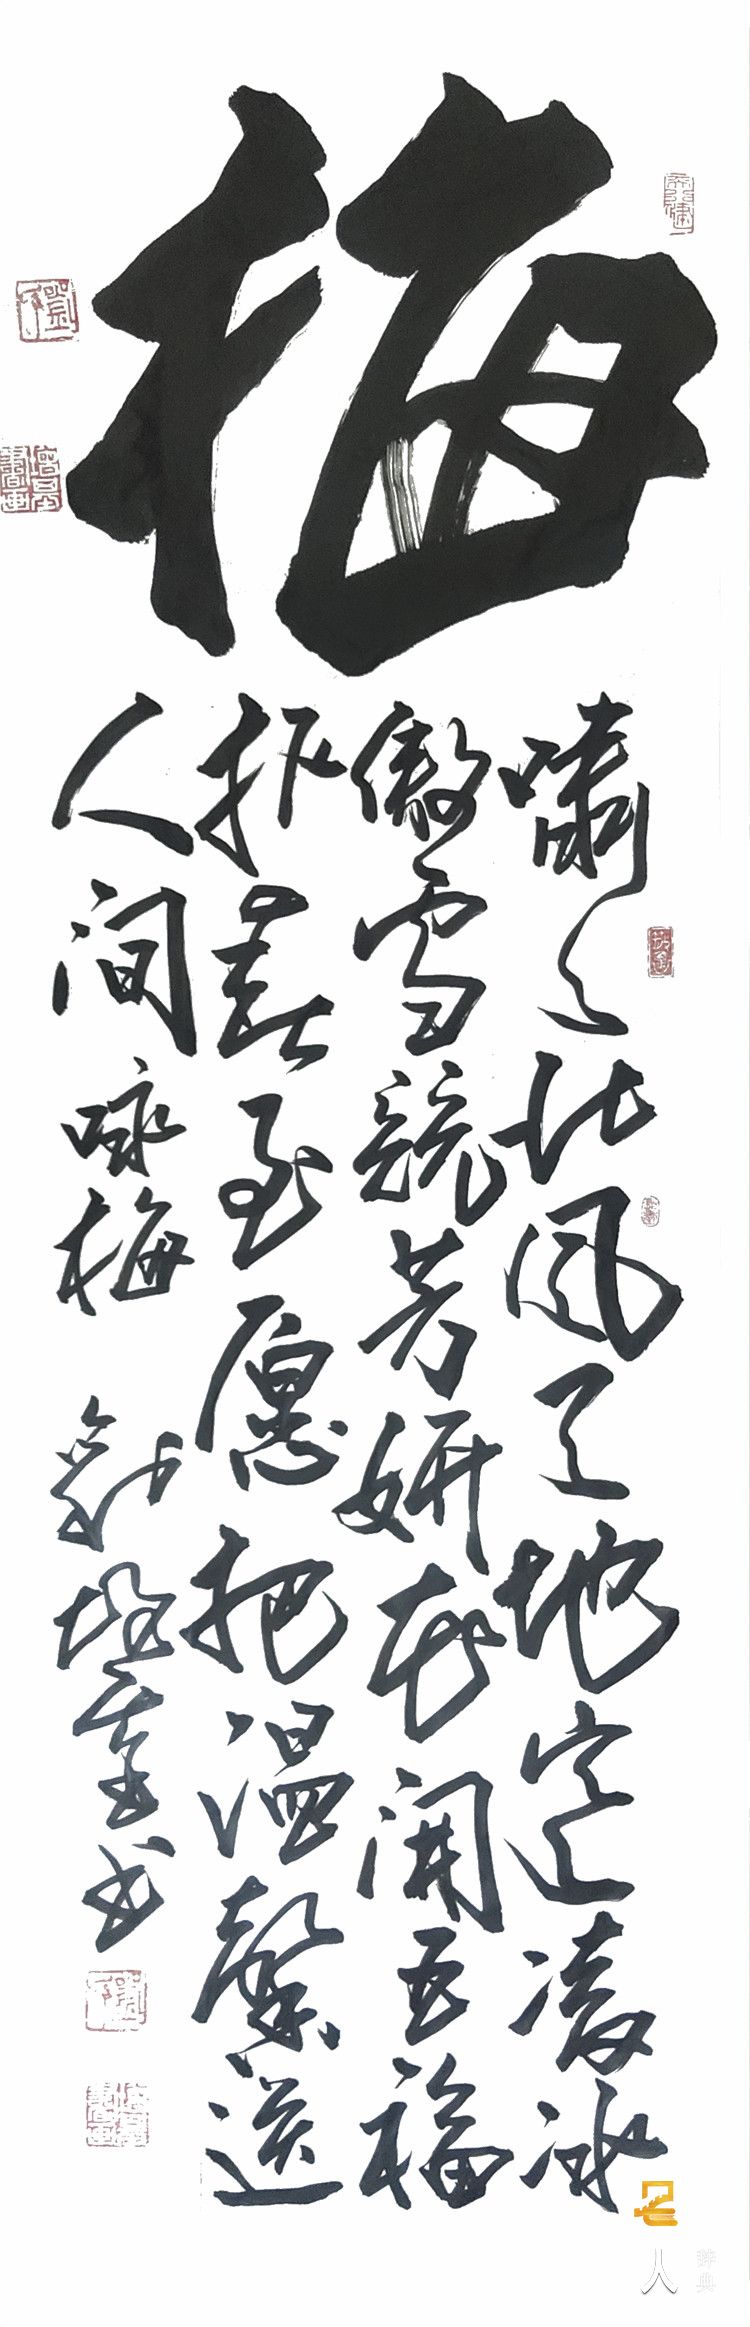 梅
啸々北风天地寒凌冰
傲雪竞芳妍花开五福
报春至愿把温馨送
人间 咏梅
书
名人
辞典